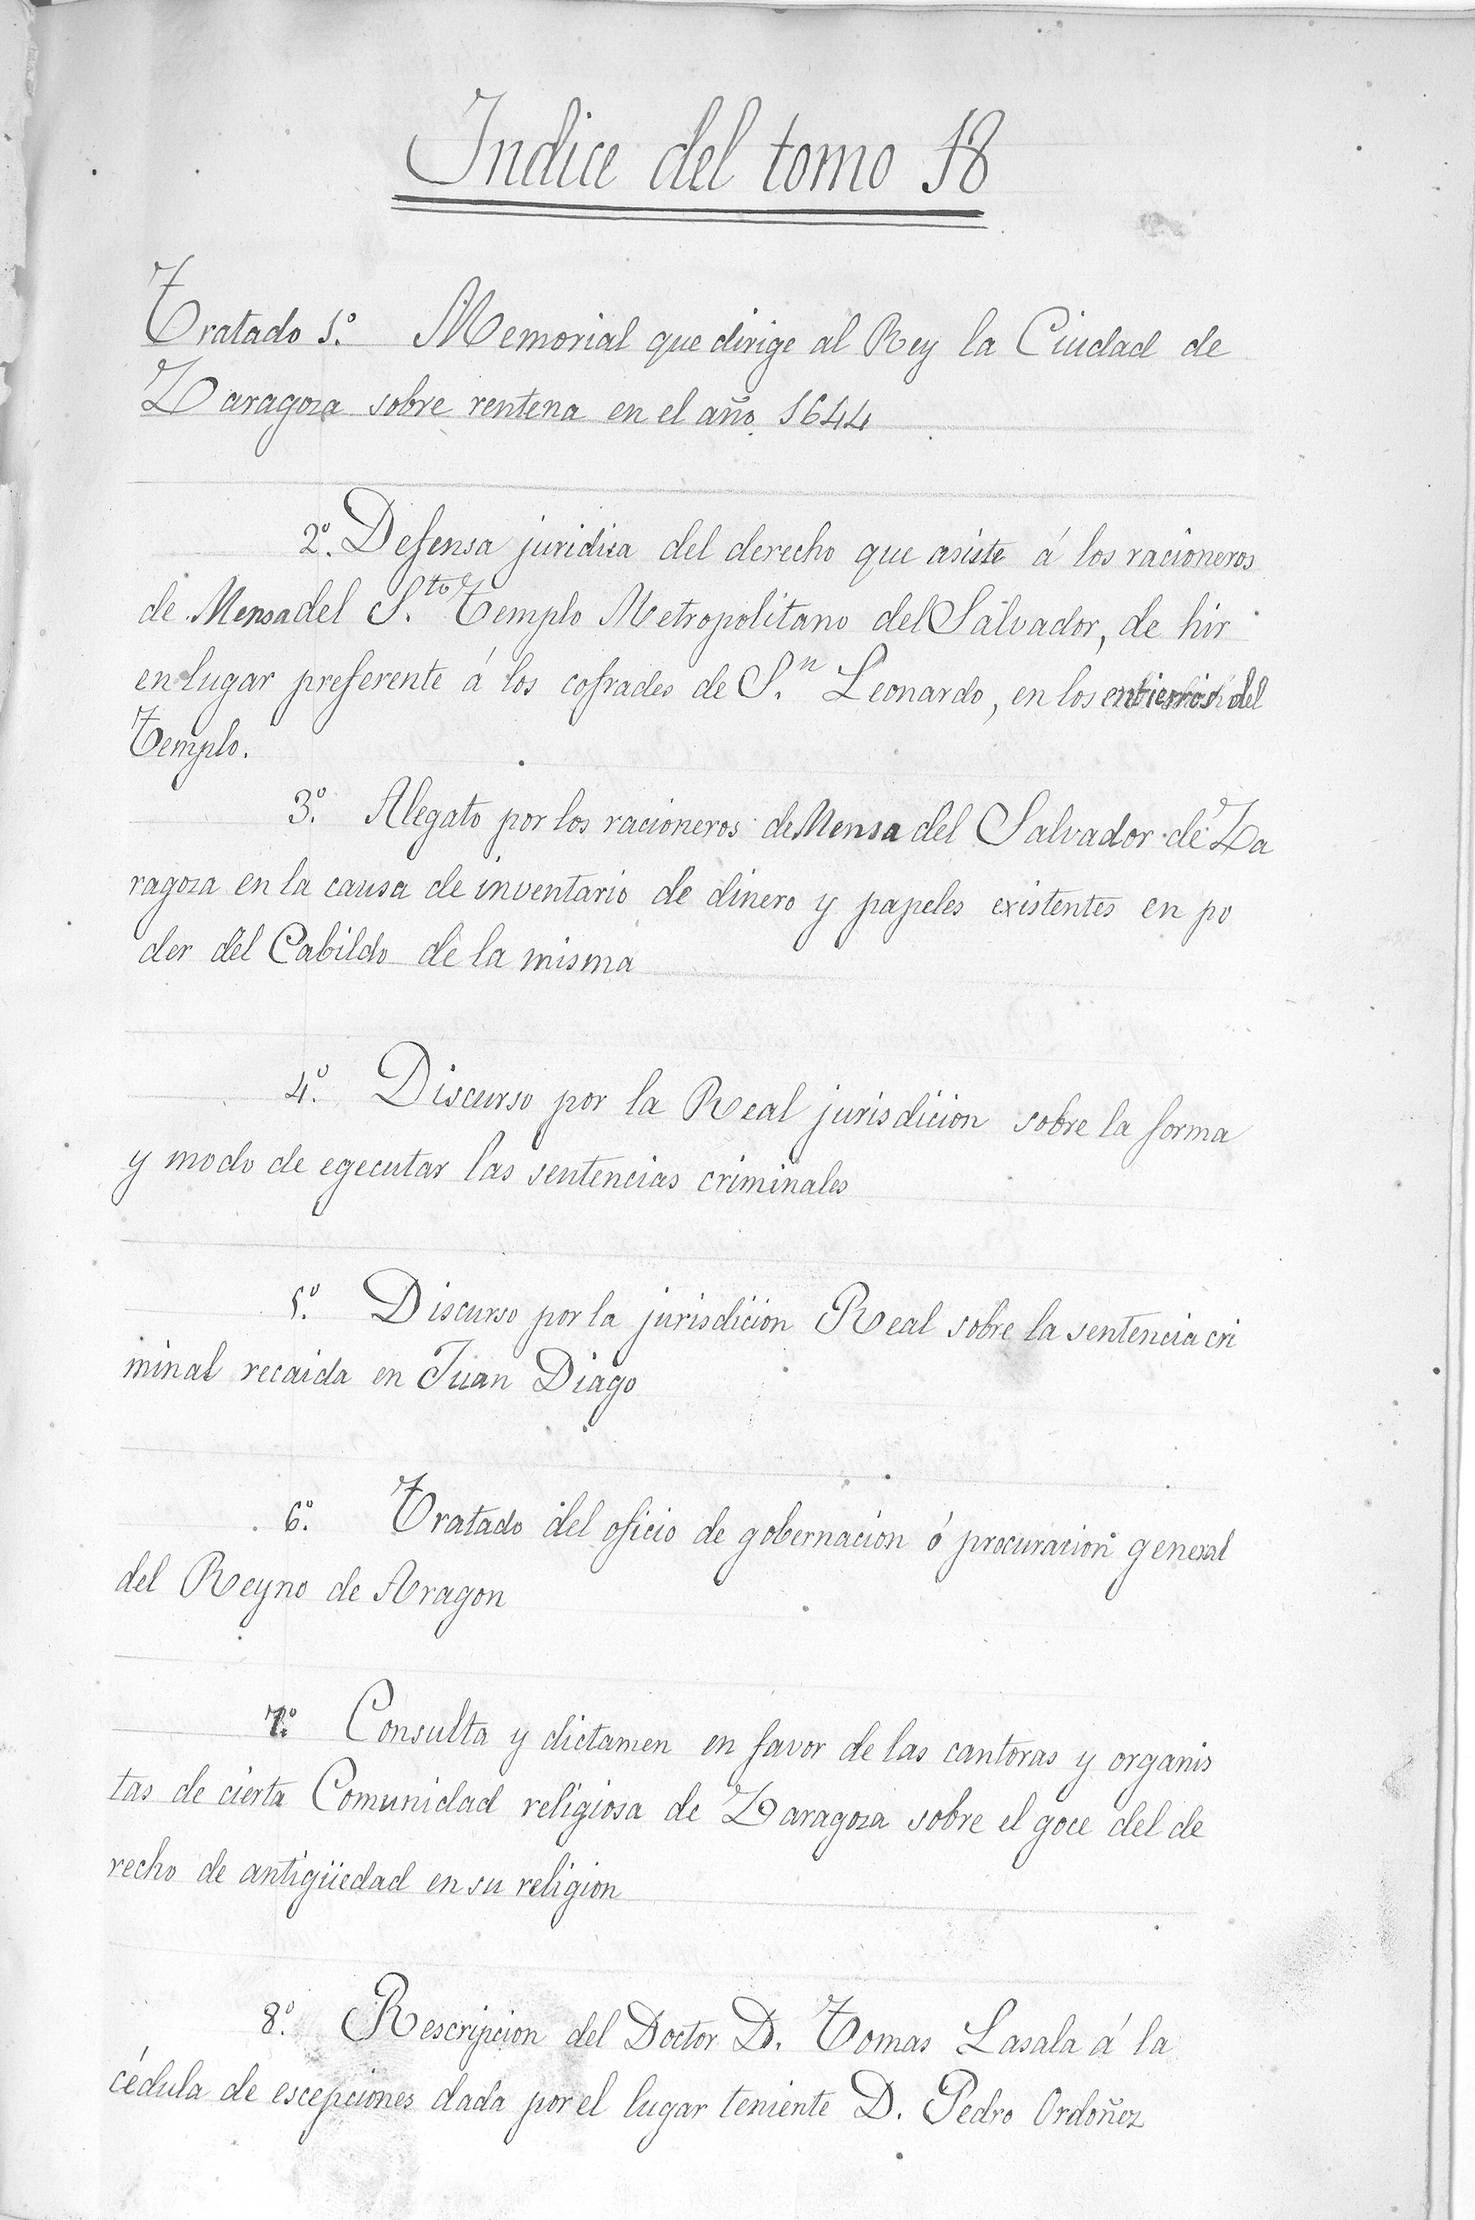 Indice del tomo 18
Tratado 1.º Memorial que dirige al Rey la Ciudad de
Zaragoza sobre rentena en el año 1644
2.º Defensa juridica del derecho que asiste á los racioneros
de Mensa del S.to Templo Metropolitano del Salvador, de hir
en lugar preferente á los cofrades de S.n Leonardo, en los entierros del
Templo.
3.º Alegato por los racioneros de Mensa del Salvador de Za
ragoza en la causa de inventario de dinero y papeles existentes en po
der del Cabildo de la misma
4.º Discurso por la Real jurisdicion sobre la forma
y modo de egecutar las sentencias criminales
5.º Discurso por la jurisdicion Real sobre la sentencia cri
minal recaida en Juan Diago
6.º Tratado del oficio de gobernacion ó procuracion general
del Reyno de Aragon
7.º Consulta y dictamen en favor de las cantoras y organis
tas de cierta Comunidad religiosa de Zaragoza sobre el goce del de
recho de antigüedad en su religion
8.º Rescripcion del Doctor D. Tomas Lasala á la
cédula de escepciones dada por el lugar teniente D. Pedro Ordoñez